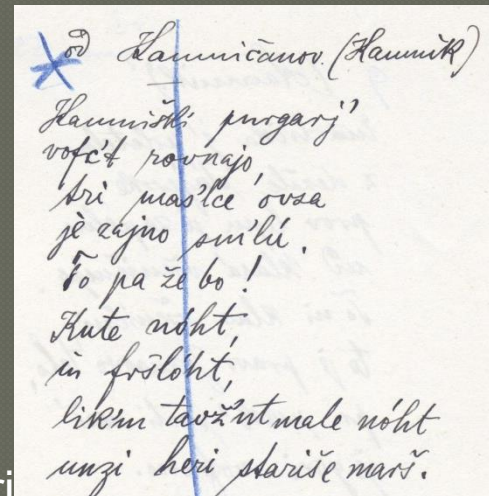 od Kamničanov. (Kamnik)
Kamniški purgarj'
vofc't rovnajo,
tri mašlce ovsa
je zajno snilú.
To pa že bo!
Kute nóht,
in fršlóht,
lik'm tavž'nt male nóht
unzi heri stariše marš.
ri